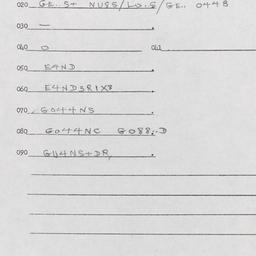 020 GE.. S+ NURS/LO.S/GE.. 0448
030 —
040 0 041
050 E4ND
060 E4ND3R1X8
070 G044NS
080 G044NC G088..D
090 G114NS+DR,